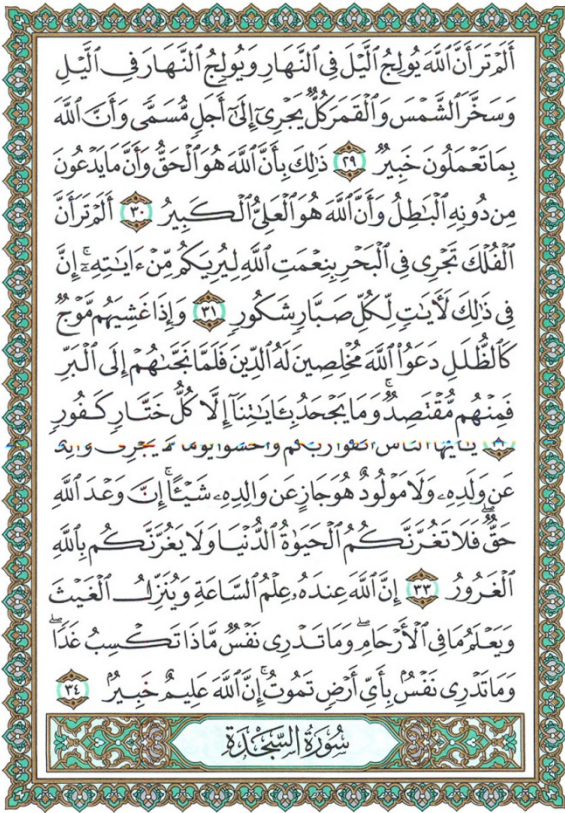 أَلَمْ تَرَ أَنَّ ٱللَّهَ يُولِجُ ٱلَّيْلَ فِى ٱلنَّهَارِ وَيُولِجُ ٱلنَّهَارَ فِى ٱلَّيْلِ
وَسَخَّرَ ٱلشَّمْسَ وَٱلْقَمَرَ كُلٌّ يَجْرِىٓ إِلَىٰٓ أَجَلٍ مُّسَمًّى وَأَنَّ ٱللَّهَ
بِمَا تَعْمَلُونَ خَبِيرٌ ٢٩ ذَٰلِكَ بِأَنَّ ٱللَّهَ هُوَ ٱلْحَقُّ وَأَنَّ مَا يَدْعُونَ
مِن دُونِهِ ٱلْبَٰطِلُ وَأَنَّ ٱللَّهَ هُوَ ٱلْعَلِىُّ ٱلْكَبِيرُ ٣٠ أَلَمْ تَرَ أَنَّ
ٱلْفُلْكَ تَجْرِى فِى ٱلْبَحْرِ بِنِعْمَتِ ٱللَّهِ لِيُرِيَكُم مِّنْ ءَايَٰتِهِۦٓ ۚ إِنَّ
فِى ذَٰلِكَ لَءَايَٰتٍ لِّكُلِّ صَبَّارٍ شَكُورٍ ٣١ وَإِذَا غَشِيَهُم مَّوْجٌ
كَٱلظُّلَلِ دَعَوُا۟ ٱللَّهَ مُخْلِصِينَ لَهُ ٱلدِّينَ فَلَمَّا نَجَّىٰهُمْ إِلَى ٱلْبَرِّ
فَمِنْهُم مُّقْتَصِدٌ ۚ وَمَا يَجْحَدُ بِـَٔايَٰتِنَآ إِلَّا كُلُّ خَتَّارٍ كَفُورٍ
يَٰٓأَيُّهَا ٱلنَّاسُ ٱتَّقُوا۟ رَبَّكُمْ وَٱخْشَوْا۟ يَوْمًا لَّا يَجْزِى وَالِدٌ
عَن وَلَدِهِۦ وَلَا مَوْلُودٌ هُوَ جَازٍ عَن وَالِدِهِۦ شَيْـًٔا ۚ إِنَّ وَعْدَ ٱللَّهِ
حَقٌّ ۖ فَلَا تَغُرَّنَّكُمُ ٱلْحَيَوٰةُ ٱلدُّنْيَا وَلَا يَغُرَّنَّكُم بِٱللَّهِ
ٱلْغَرُورُ ٣٣ إِنَّ ٱللَّهَ عِندَهُۥ عِلْمُ ٱلسَّاعَةِ وَيُنَزِّلُ ٱلْغَيْثَ
وَيَعْلَمُ مَا فِى ٱلْأَرْحَامِ ۖ وَمَا تَدْرِى نَفْسٌ مَّاذَا تَكْسِبُ غَدًا ۖ
وَمَا تَدْرِى نَفْسٌۢ بِأَىِّ أَرْضٍ تَمُوتُ ۚ إِنَّ ٱللَّهَ عَلِيمٌ خَبِيرٌۢ ٣٤
سُورَةُ السَّجْدَةِ